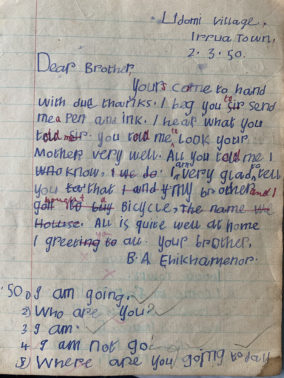 Udomi village,
Irrua Town,
2. 3. 50.
Dear Brother,
Yours come to hand
with due thanks. I beg you sir to send
me a Pen and ink. I hear what you
told me sir. you told me to Look your
Mother very well. All you told me I
who know. I we do. I am very glad, tell
you that I and my brother and I
bought a Bicycle, the name
House. All is quite well at home
I greeting to all. your brother,
B. A. Ehikhamenor.
'50. 1) I am going.
2) Who are you?
3 I am.
4 I am not go
5) Where are you going today